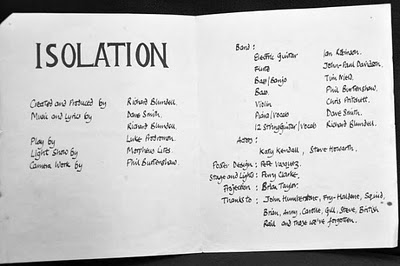 ISOLATION
Created and Produced by Richard Blundell.
Music and Lyrics by Dave Smith.
Richard Blundell.
Play by Luke
Light Show by Matthew
Camera Work by Phil Burtenshaw.
Band :
Electric Guitar Ian Robinson.
Flute John-Paul Davidson.
Bass/Banjo Tim
Bass. Phil Burtenshaw.
Violin Chris Pritchett.
Piano/Vocals Dave Smith.
12 String Guitar/Vocals Richard Blundell.
Actors : Katy Kendall, Steve Howarth.
Poster Design : Pete
Stage and Lights : Perry Clarke.
Projection : Brian Taylor.
Thanks to : John Humberstone, Fry-Haldane, Squid,
Brian, Anny, Carole, Gill, Steve, British
Rail and those we've forgotten.